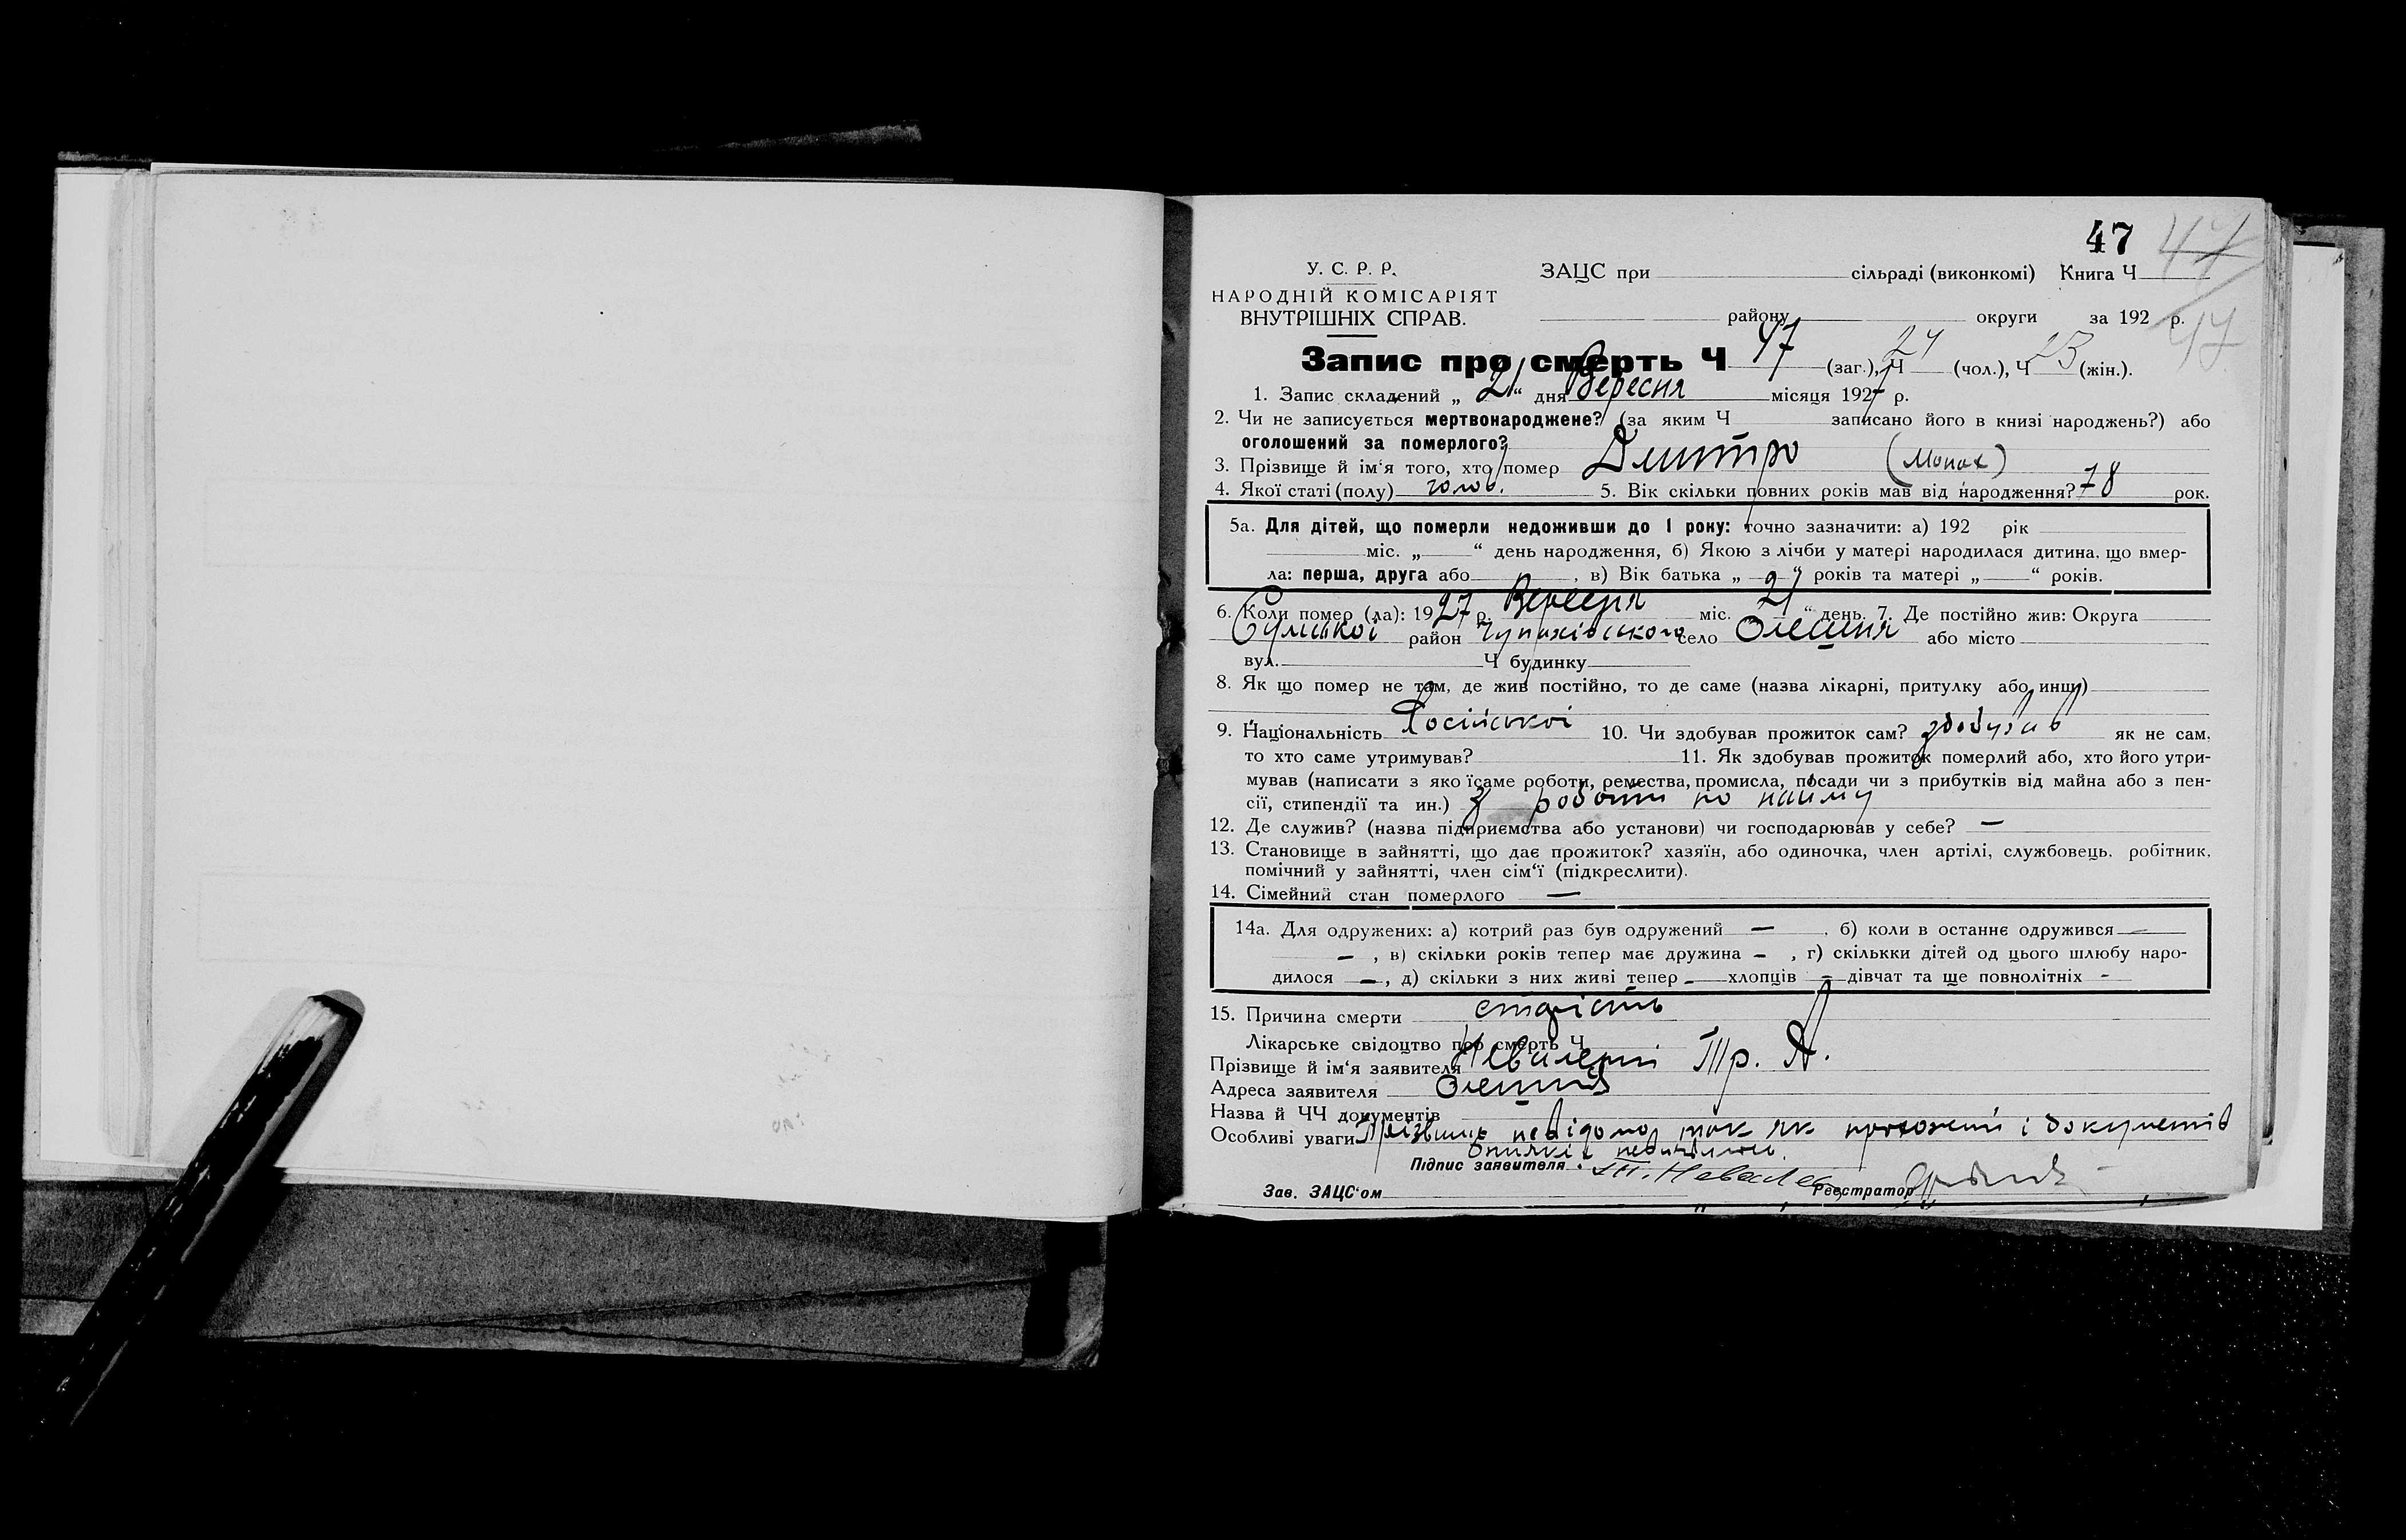 47 47
У. С. Р. Р. ЗАЦС при сільраді (виконкомі) Книга Ч
НАРОДНІЙ КОМІСАРІЯТ
ВНУТРІШНІХ СПРАВ. району округи за 192 р.
47
Запис про смерть Ч 47 (заг.), Ч 24 (чол.), Ч 23 (жін.).
1. Запис складений „ 21 “ дня Вересня місяця 1927 р.
2. Чи не записується мертвонароджене? (за яким Ч записано його в книзі народжень?) або
оголошений за померлого?
3. Прізвище й ім‘я того, хто помер Дмитро (Монах)
4. Якої статі (полу) чолов. 5. Вік скільки повних років мав від народження? 78 рок.
5а. Для дітей, що померли недоживши до 1 року: точно зазначити: а) 192 рік
міс. „ “ день народження, б) Якою з лічби у матері народилася дитина, що вмер-
ла: перша, друга або , в) Вік батька „ “ років та матері „ “ років.
6. Коли помер (ла): 1927 р. Вересня міс. 21 “ день. 7. Де постійно жив: Округа
Сумської район Чупахівського село Олешня або місто
вул. Ч будинку
8. Як що помер не там, де жив постійно, то де саме (назва лікарні, притулку або инш.)
9. Національність Російської 10. Чи здобував прожиток сам? здобував як не сам,
то хто саме утримував? 11. Як здобував прожиток померлий або, хто його утри-
мував (написати з яко їсаме роботи, ремества, промисла, посади чи з прибутків від майна або з пен-
сії, стипендії та ин.) З роботи по найму
12. Де служив? (назва підприємства або установи) чи господарював у себе? —
13. Становище в зайнятті, що дає прожиток? хазяїн, або одиночка, член артілі, службовець, робітник,
помічний у зайнятті, член сім‘ї (підкреслити).
14. Сімейний стан померлого —
14а. Для одружених: а) котрий раз був одружений — , б) коли в останнє одружився —
— , в) скільки років тепер має дружина — , г) скількки дітей од цього шлюбу наро-
дилося — , д) скільки з них живі тепер — хлопців — дівчат та ще повнолітніх -
15. Причина смерти старість
Лікарське свідоцтво про смерть Ч
Прізвище й ім‘я заявителя Тр. Д.
Адреса заявителя Олешня
Назва й ЧЧ документів
Особливі уваги Прізвище невідомо так як і документів
Підпис заявителя
Зав. ЗАЦС‘ом Реєстратор